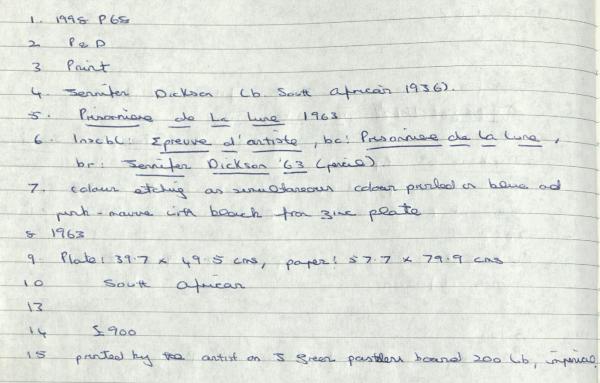 1. 1998 P68
2 P & D
3 Print
4. Jennifer Dickson (b. South African 1936).
5. Prisoniere de La Lune 1963
6. Inscbl: Epreuve d'artiste, bc: Prisoniere de La Lune,
br: Jennifer Dickson '63 (pencil).
7. colour etching as simultaneous colour printed in blue ad
pink-mauve with black from zinc plate
8 1963
9. Plate: 39.7 x 49.5 cms, paper: 57.7 x 79.9 cms
10 South African
13
14 £900
15 printed by the artist on J green board 200 Lb, imperial